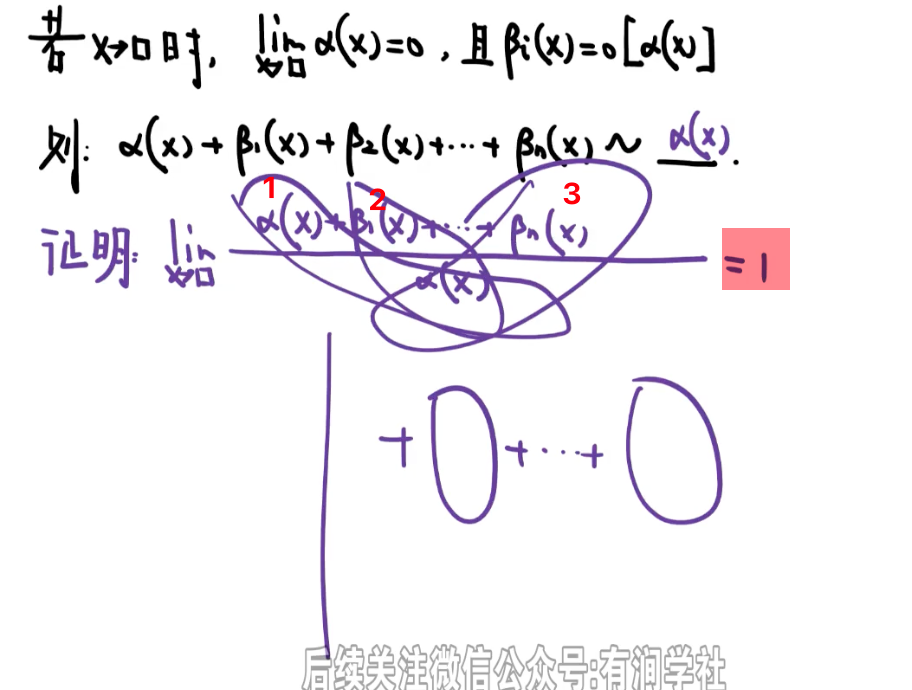 若 x→□ 时, lim x→□ α(x)=0 , 且 βi(x)=o[α(x)]
则: α(x)+β1(x)+β2(x)+···+βn(x) ~ α(x) .
1 2 3
证明: lim x→□ α(x)+β1(x)+···+βn(x) / α(x) = 1
+ 0 +···+ 0
后续关注微信公众号:有润学社